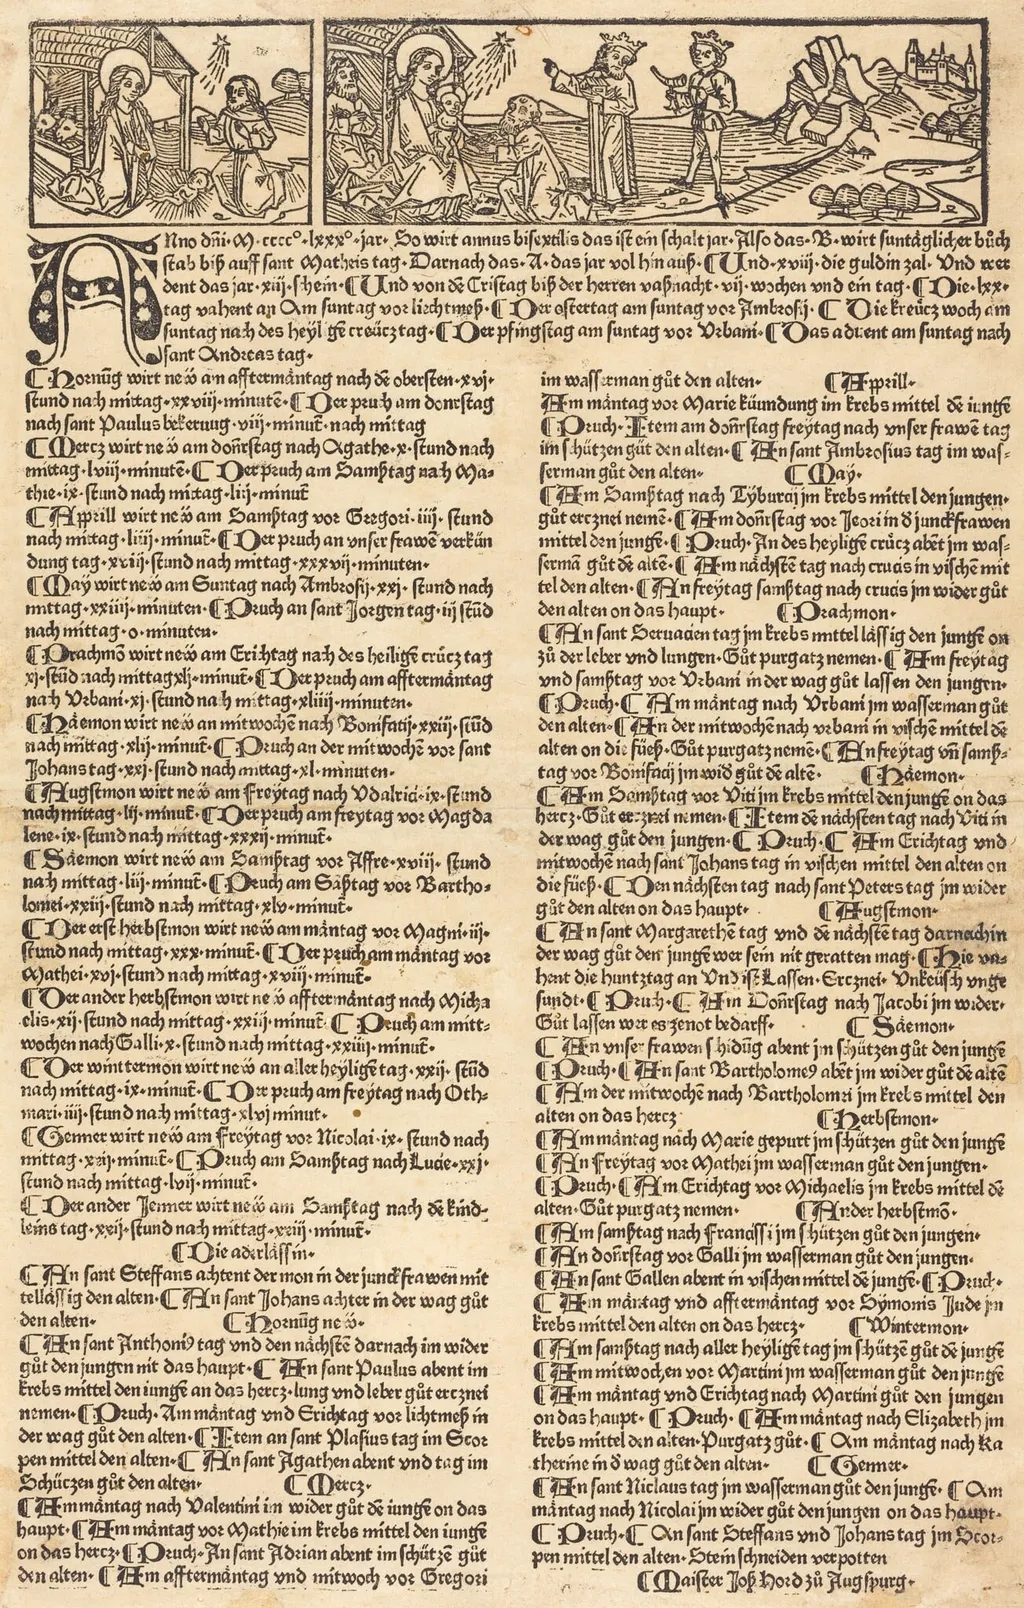 Anno dñi·M·cccc°·lxxx°·jar· So wirt annus bisextilis das ist ein schalt jar·Also das·B·wirt suntäglicher bůch
stab biß auff sant Matheis tag·Darnach das·A·das jar vol hin auß·⸿Und·xviii·die guldin zal· Vnd wer
dent das jar·xiij·schein·⸿Und von dẽ Cristag biß der herren vaßnacht·vij·wochen vnd ein tag·⸿Die·lxx·
tag vahent an Am suntag vor liechtmeß·⸿Der ostertag am suntag vor Ambrosij·⸿Die kreücz woch am
suntag nach des heyligẽ creücz tag·⸿Der pfingstag am suntag vor Vrbani·⸿Das aduent am suntag nach
sant Andreas tag·
⸿Hornũg wirt new am afftermäntag nach dẽ obersten·xvj·
stund nach mittag·xxviii·minutẽ·⸿Der pruch am donrstag
nach sant Paulus bekerung·viii·minut̃·nach mittag
⸿Mercz wirt new am doñrstag nach Agathe·x·stund nach
mittag·lviij·minutẽ·⸿Der pruch am Samßtag nach Ma-
thie·ix·stund nach mittag·liij·minut̃
⸿Apprill wirt new am Samßtag vor Gregori·iiij·stund
nach mittag·liiij·minut̃·⸿Der pruch an vnser frawẽ verkün
dung tag·xviij·stund nach mittag·xxxvij·minuten·
⸿May wirt new am Suntag nach Ambrosij·xxj·stund nach
mittag·xxiiij·minuten·⸿Pruch an sant Jorgen tag·iij stũd
nach mittag·o·minuten·
⸿Prachmõ wirt new am Erichtag nach des heiligẽ crücz tag
xj·stũd nach mittag xlj·minut̃·⸿Der pruch am afftermäntag
nach Vrbani·xj·stund nach mittag·xliiii·minuten·
⸿Häemon wirt new an mitwochẽ nach Bonifatij·xxiij·stũd
nach mittag·xlij·minut̃·⸿Pruch an der mitwochẽ vor sant
Johans tag·xxj·stund nach mittag·xl·minuten·
⸿Augstmon wirt new am Freytag nach Vdalrici·ix·stund
nach mittag·lij·minut̃·⸿Der pruch am freytag vor Magda
lene·ix·stund nach mittag·xxxij·minut̃·
⸿Säemon wirt new am Samßtag vor Affre·xviii·stund
nach mittag·liij·minut̃·⸿Pruch am Sãßtag vor Bartho-
lomei·xxiij·stund nach mittag·xlv·minut̃·
⸿Der erst herbstmon wirt new am mäntag vor Magni·iij·
stund nach mittag·xxx·minut̃·⸿Der pruch am mäntag vor
Mathei·xvj·stund nach mittag·xviii·minut̃·
⸿Der ander herbstmon wirt new afftermäntag nach Micha
elis·xij·stund nach mittag·xxiij·minut̃·⸿Pruch am mitt-
wochen nach Galli·x·stund nach mittag·xxiii·minut̃·
⸿Der wintermon wirt new an aller heyligẽ tag·xxij·stũd
nach mittag·ix·minut̃·⸿Der pruch am freytag nach Oth-
mari·iiij·stund nach mittag·xlvj minut·
⸿Genner wirt new am Freytag vor Nicolai·ix·stund nach
mittag·xxij·minut̃·⸿Pruch am Samßtag nach Lucie·xxj·
stund nach mittag·lvij·minut̃·
⸿Der ander Jenner wirt new am Samßtag nach dẽ kind-
leins tag·xxij·stund nach mittag·xxiii·minut̃·
⸿Die aderlässin·
⸿An sant Steffans achtent der mon in der junckfrawen mit
tellässig den alten·⸿An sant Johans achter in der wag gůt
den alten· ⸿Hornũg new·
⸿An sant Anthoniꝰ tag vnd den nächstẽ darnach im wider
gůt den jungen nit das haupt·⸿An sant Paulus abent im
krebs mittel den iungẽ an das hercz·lung vnd leber gůt ercznei
nemen·⸿Pruch·Am mäntag vnd Erichtag vor liechtmeß in
der wag gůt den alten·⸿Item an sant Plasius tag im Scor
pen mittel den alten·⸿An sant Agathen abent vnd tag im
Schüczen gůt den alten· ⸿Mercz·
⸿Am mäntag nach Valentini im wider gůt dẽ iungẽ on das
haupt·⸿Am mäntag vor Mathie im krebs mittel den iungẽ
on das hercz·⸿Pruch·An sant Adrian abent im schützẽ gůt
den alten·⸿Am afftermäntag vnd mitwoch vor Gregori
im wasserman gůt den alten· ⸿Apprill·
Am mäntag vor Marie küundung im krebs mittel dẽ iungẽ
⸿Pruch·Item am doñrstag freytag nach vnser frawẽ tag
im schützen gůt den alten·⸿An sant Ambrosius tag im was-
serman gůt den alten· ⸿May·
⸿Am Samßtag nach Tyburcij im krebs mittel den jungen·
gůt ercznei nemẽ·⸿Am doñrstag vor Jeori in d̃ junckfrawen
mittel den jungẽ·⸿Pruch·An des heyligẽ crücz abẽt im was-
sermã gůt dẽ altẽ·⸿Am nächstẽ tag nach crucis in vischẽ mit
tel den alten·⸿An freytag samßtag nach crucis im wider gůt
den alten on das haupt· ⸿Prachmon·
⸿An sant Seruacien tag im krebs mittel lässig den jungẽ on
zů der leber vnd lungen·Gůt purgatz nemen·⸿Am freytag
vnd samßtag vor Vrbani in der wag gůt lassen den jungen·
⸿Pruch·⸿Am mäntag nach Vrbani im wasserman gůt
den alten·⸿An der mitwochẽ nach vrbani in vischẽ mittel dẽ
alten on die füeß·Gůt purgatz nemẽ·⸿An freytag vñ samß-
tag vor Bonifacij im wid̃ gůt dẽ altẽ· ⸿Häemon·
⸿Am Samßtag vor Viti im krebs mittel den jungẽ on das
hercz·Gůt ercznei nemen·⸿Item dẽ nächsten tag nach Viti in
der wag gůt den jungen·⸿Pruch·⸿Am Erichtag vnd
mitwochẽ nach sant Johans tag in vischen mittel den alten on
die füeß·⸿Den nächsten tag nach sant Peters tag im wider
gůt den alten on das haupt· ⸿Augstmon·
⸿An sant Margarethẽ tag vnd dẽ nächstẽ tag darnach in
der wag gůt den jungẽ wer sein nit geratten mag·⸿Hie va-
hent die huntztag an Vnd ist Lassen·Ercznei·Vnkeüsch vnge
sundt·⸿Pruch·⸿Am Donrstag nach Jacobi im wider·
Gůt lassen wer es ze not bedarff· ⸿Säemon·
⸿An vnser frawen schidũg abent im schützen gůt den jungẽ
⸿Pruch·⸿An sant Bartholomeꝰ abẽt im wider gůt dẽ altẽ
⸿Am der mitwochẽ nach Bartholomei im krebs mittel den
alten on das hercz ⸿Herbstmon·
⸿Am mäntag nach Marie gepurt im schützen gůt den jungẽ
⸿An Freytag vor Mathei im wasserman gůt den jungen·
⸿Pruch·⸿Am Erichtag vor Michaelis im krebs mittel dẽ
alten·Gůt purgatz nemen· ⸿Ander herbstmõ·
⸿Am samßtag nach Francissi im schützen gůt den jungen·
⸿An doñrstag vor Galli im wasserman gůt den jungen·
⸿An sant Gallen abent in vischen mittel dẽ jungẽ·⸿Pruch·
⸿Am mäntag vnd afftermäntag vor Symonis Jude jm
krebs mittel den alten on das hercz· ⸿Wintermon·
⸿Am samßtag nach aller heyligẽ tag im schützẽ gůt dẽ jungẽ
⸿Am mitwochen vor Martini im wasserman gůt den jungẽ
⸿Am mäntag vnd Erichtag nach Martini gůt den jungen
on das haupt·⸿Pruch·⸿Am mäntag nach Elizabeth jm
krebs mittel den alten·Purgatz gůt·⸿Am mäntag nach Ka
therine in d̃ wag gůt den alten· ⸿Genner·
⸿An sant Niclaus tag im wasserman gůt den jungẽ·⸿Am
mäntag nach Nicolai jm wider gůt den jungen on das haupt·
⸿Pruch·⸿An sant Steffans vnd Johans tag jm Scor-
pen mittel den alten·Stein schneiden verpotten
⸿Maister Joß Hord zů Augspurg·